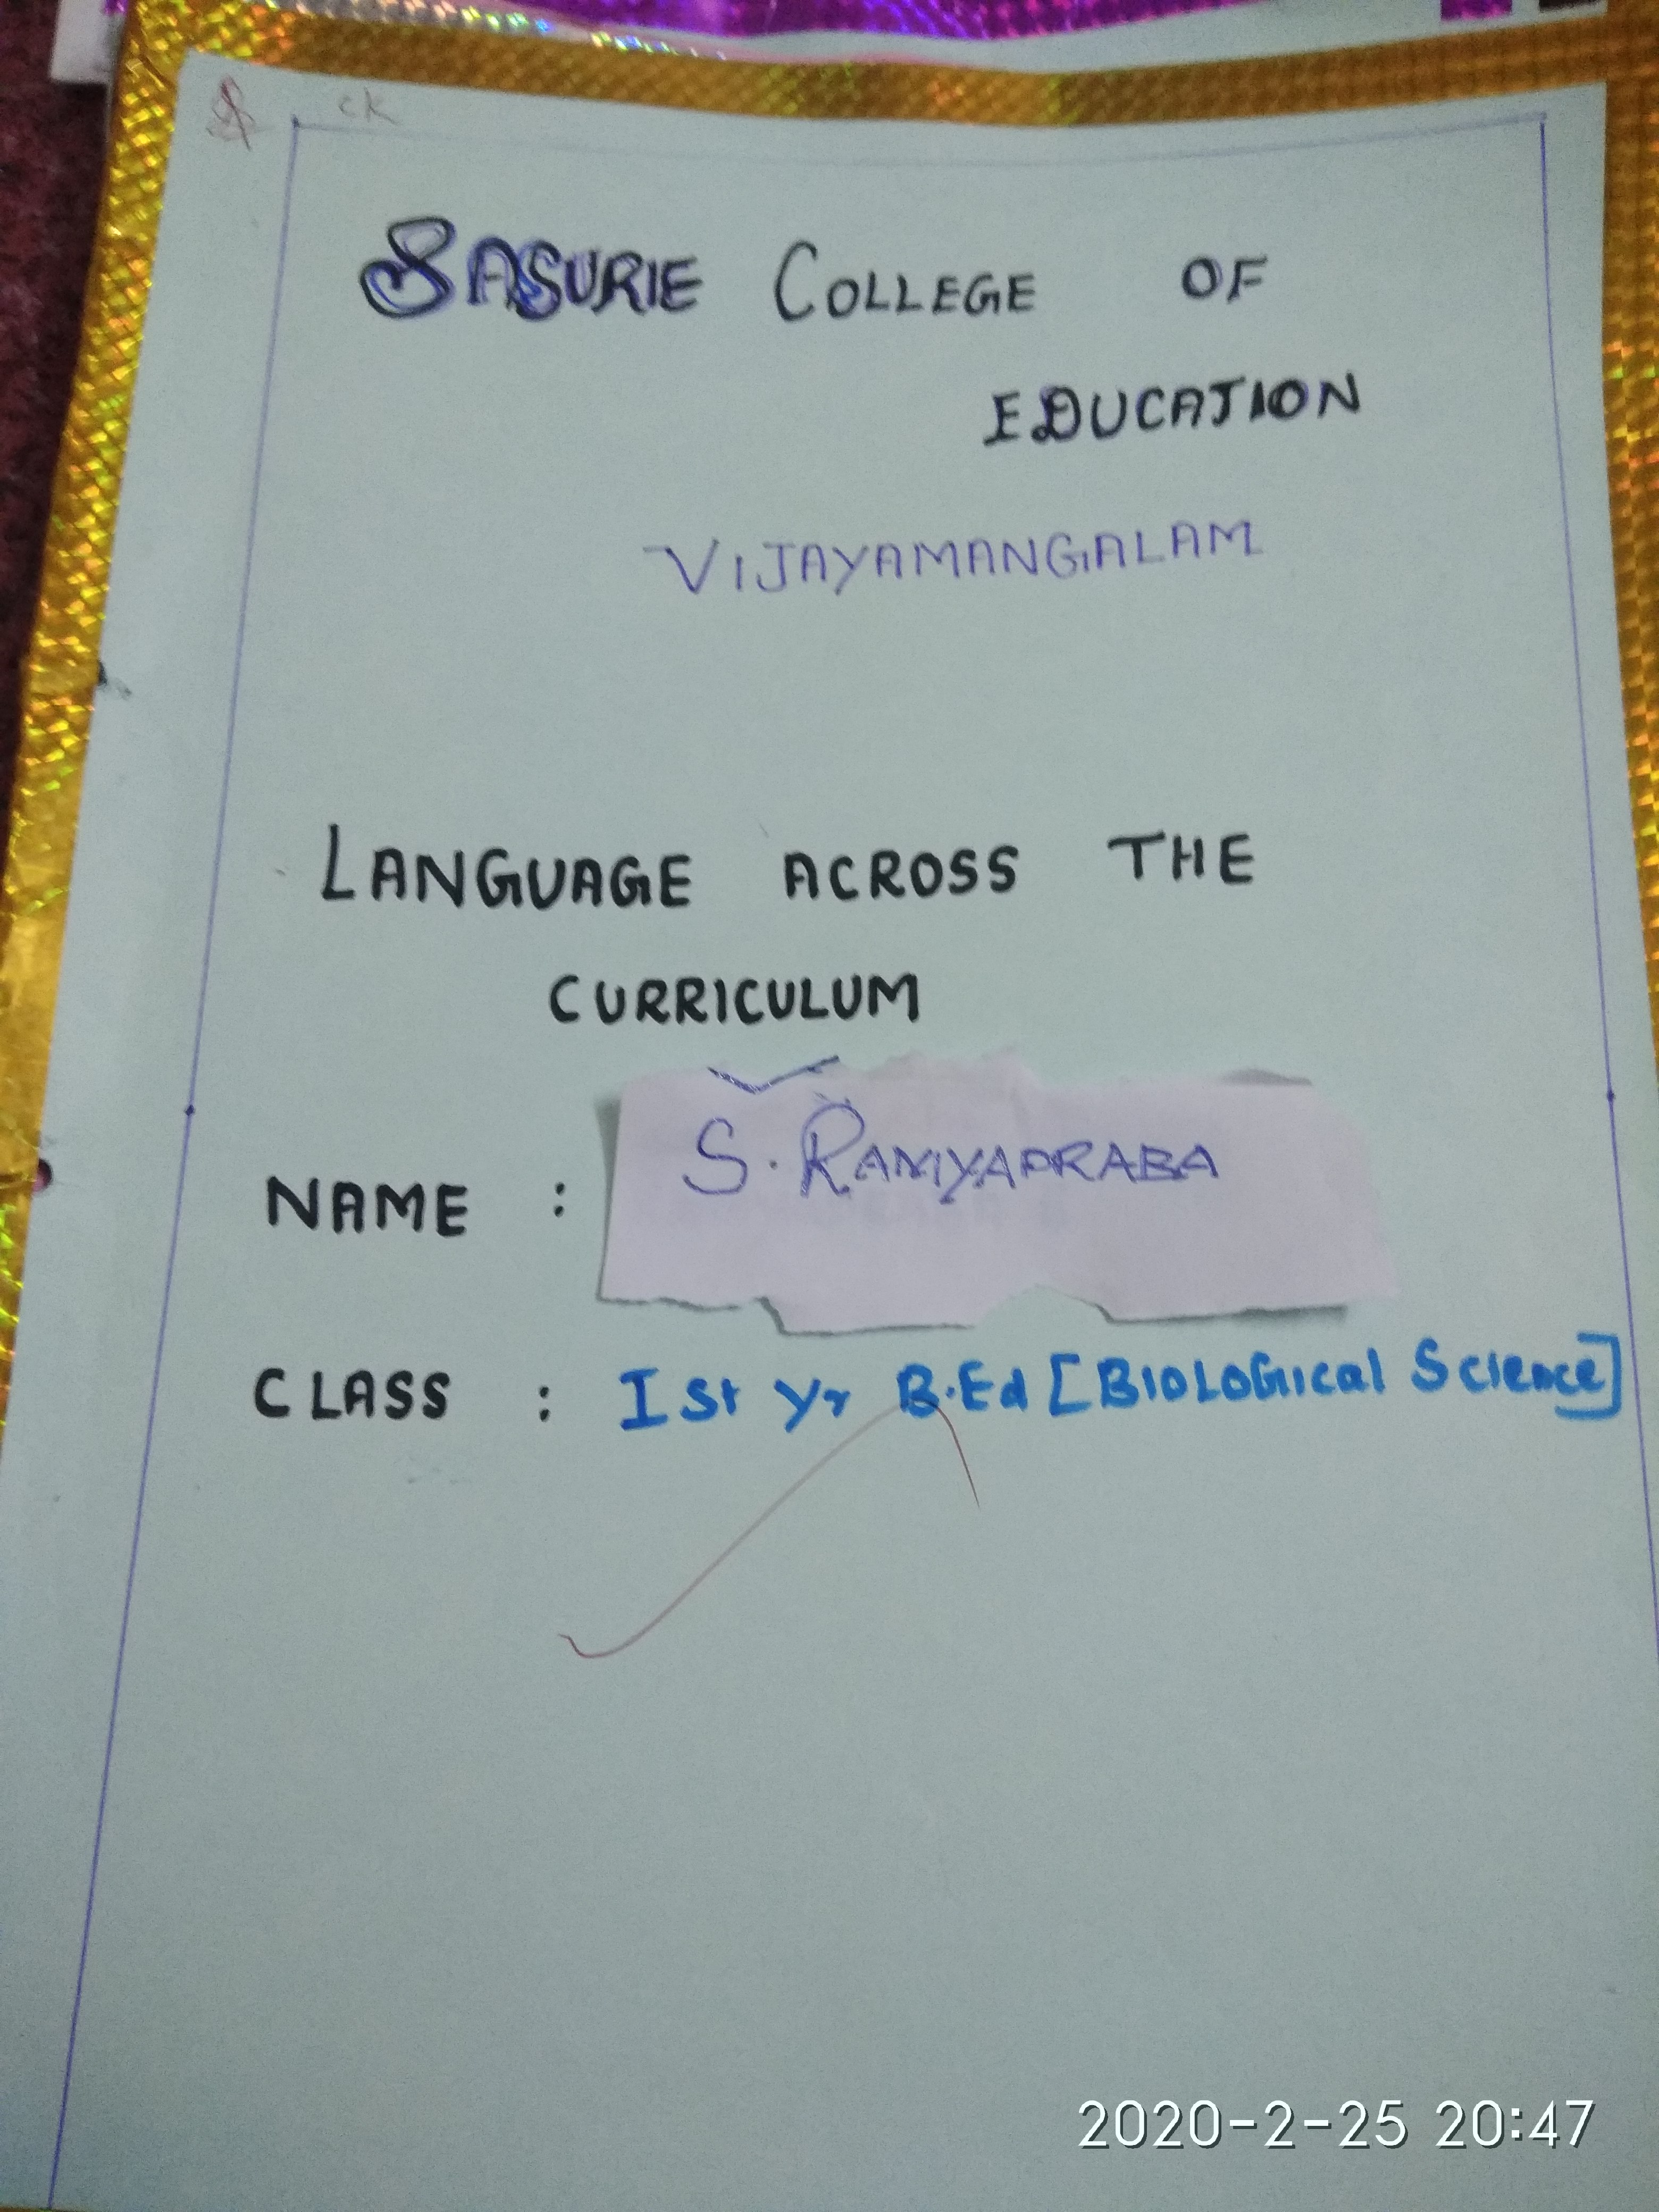 ck
SASURIE COLLEGE OF
EDUCATION
VIJAYAMANGALAM
LANGUAGE ACROSS THE
CURRICULUM
NAME : S. RAMYAPRABA
CLASS : I St Yr B.Ed [BIOLOGICAL SCIENCE]
2020-2-25 20:47